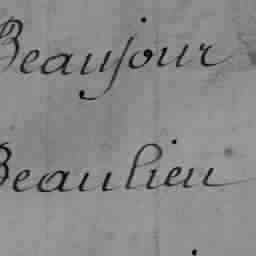 Beaujour
Beaulieu